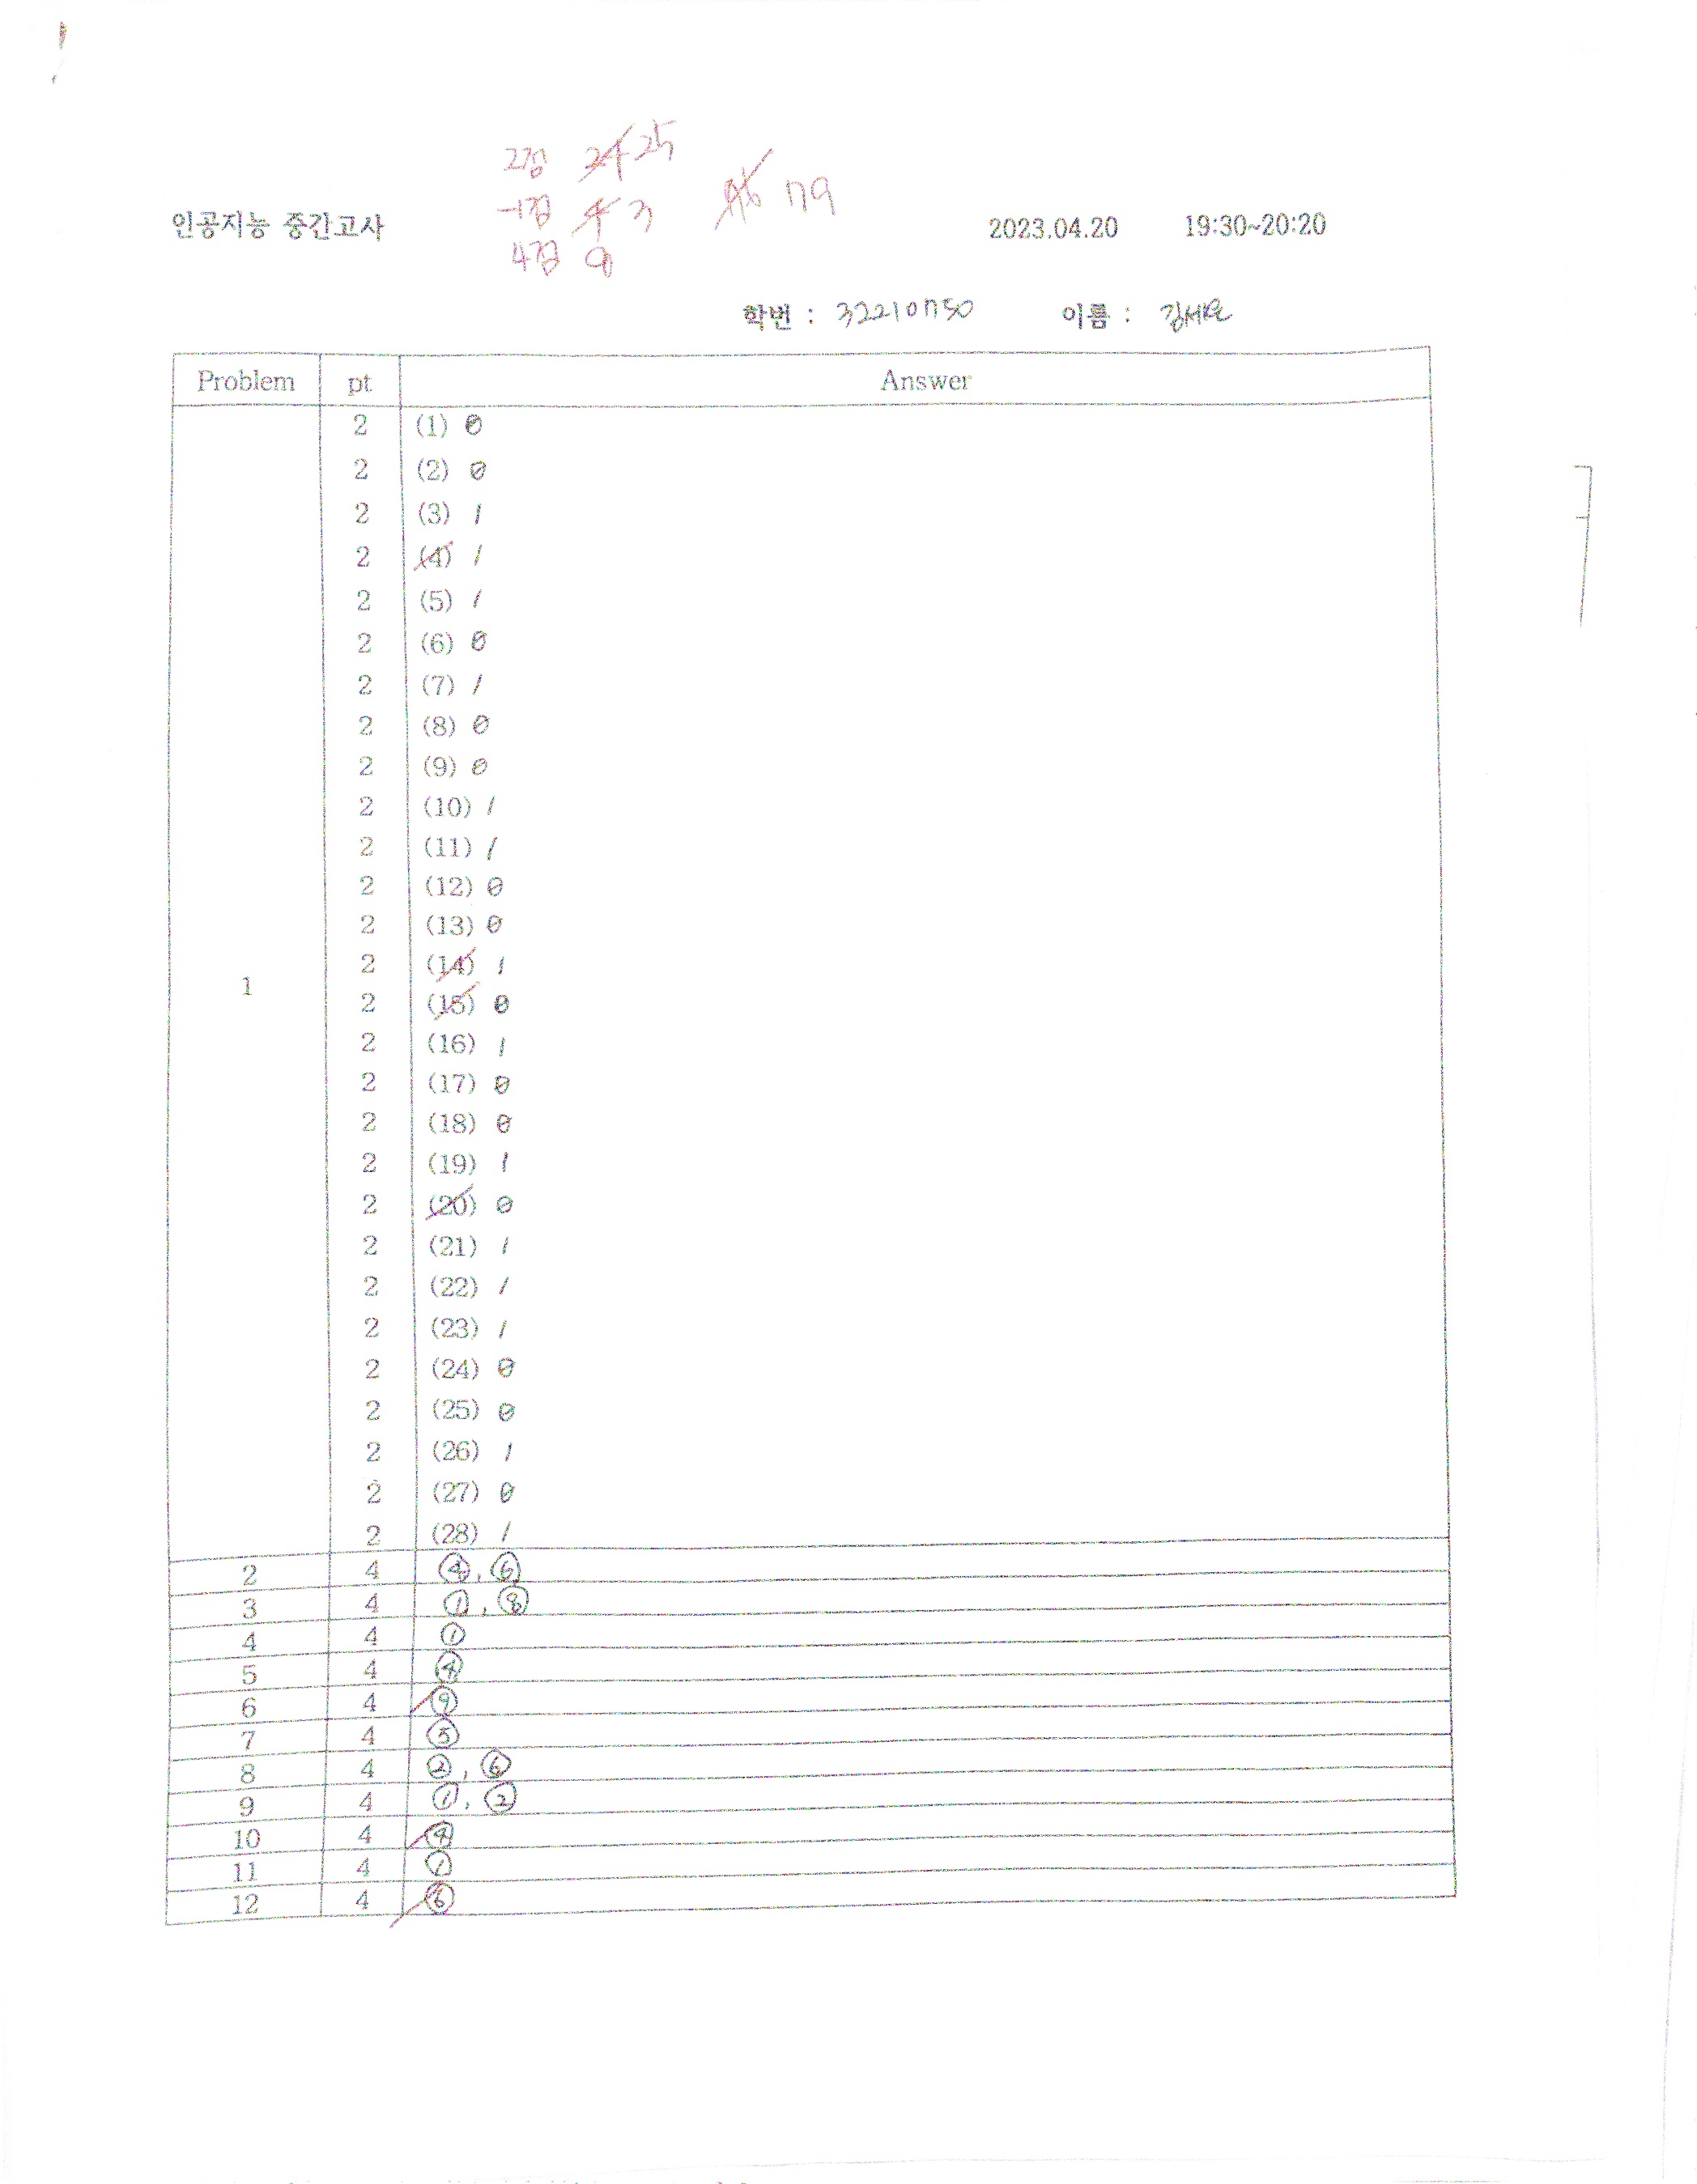 2점 24 25
-1점 4 3 76 79
4점 9
인공지능 중간고사 2023.04.20 19:30~20:20
학번 : 32210750 이름 :
Problem pt Answer
1
2 (1) 0
2 (2) 0
2 (3) 1
2 (4) 1
2 (5) 1
2 (6) 0
2 (7) 1
2 (8) 0
2 (9) 0
2 (10) 1
2 (11) 1
2 (12) 0
2 (13) 0
2 (14) 1
2 (15) 0
2 (16) 1
2 (17) 0
2 (18) 0
2 (19) 1
2 (20) 0
2 (21) 1
2 (22) 1
2 (23) 1
2 (24) 0
2 (25) 0
2 (26) 1
2 (27) 0
2 (28) 1
2 4 ④, ⑥
3 4 ①, ⑧
4 4 ①
5 4 ④
6 4
7 4 ⑤
8 4 ②, ⑥
9 4 ①, ②
10 4 ④
11 4 ①
12 4 ⑥